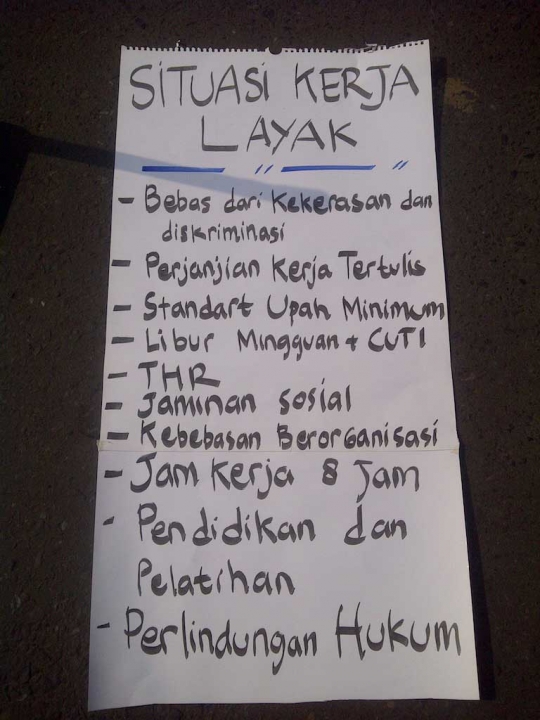 SITUASI KERJA
LAYAK
- Bebas dari Kekerasan dan
diskriminasi
- Perjanjian Kerja Tertulis
- Standart Upah Minimum
- Libur Mingguan + CUTI
- THR
- Jaminan sosial
- Kebebasan Berorganisasi
- Jam Kerja 8 Jam
- Pendidikan dan
Pelatihan
- Perlindungan Hukum